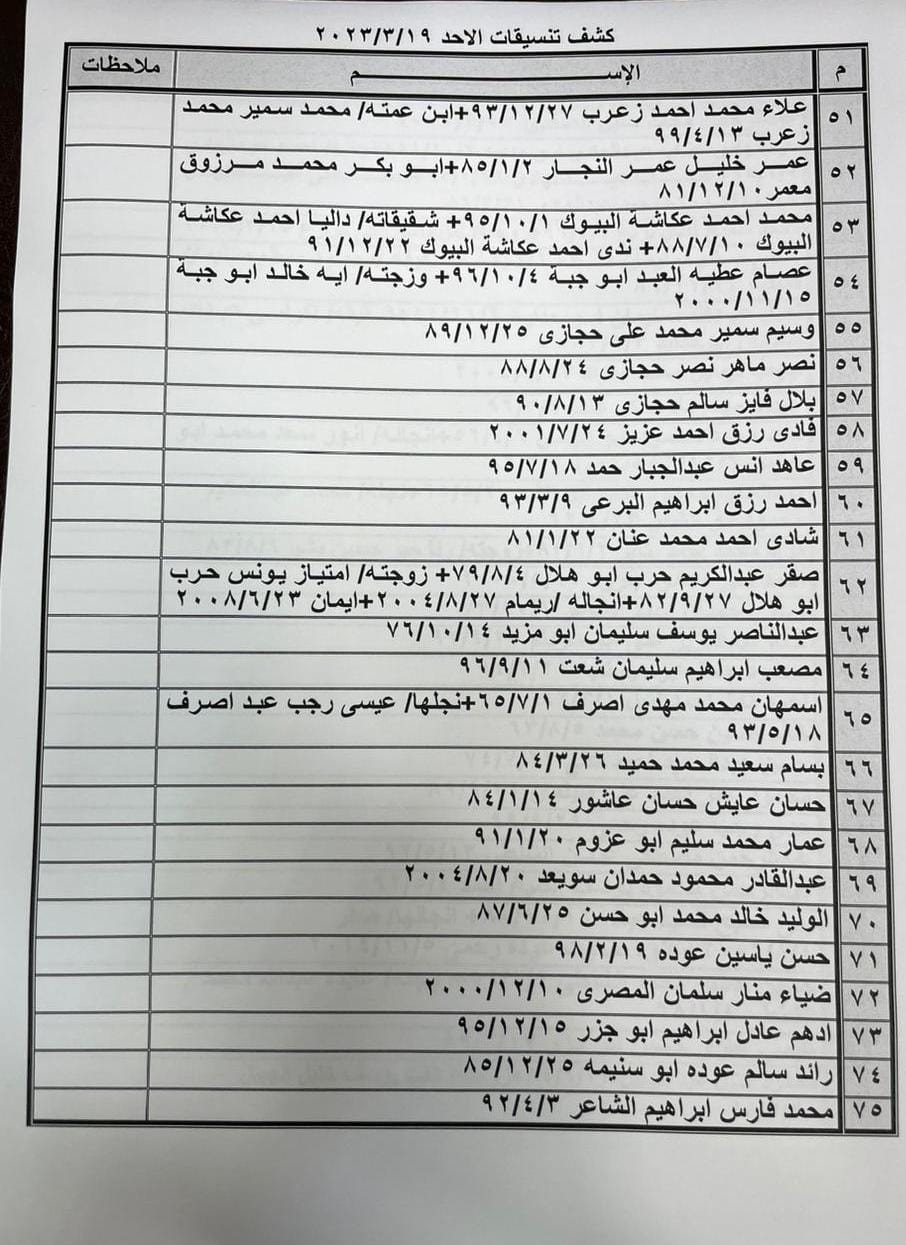 كشف تنسيقات الاحد ٢٠٢٣/٣/١٩
م الإســـــــــــم ملاحظات
٥١ علاء محمد احمد زعرب ٩٣/١٢/٢٧+ابن عمته/ محمد سمير محمد
زعرب ٩٩/٤/١٣
٥٢ عمر خليل عمر النجار ٨٥/١/٢+ابو بكر محمد مرزوق
معمر ٨١/١٢/١٠
٥٣ محمد احمد عكاشة البيوك ٩٥/١٠/١+ شقيقاته/ داليا احمد عكاشة
البيوك ٨٨/٧/١٠+ ندى احمد عكاشة البيوك ٩١/١٢/٢٢
٥٤ عصام عطيه العبد ابو جبة ٩٦/١٠/٤+ وزجته/ ايه خالد ابو جبة
٢٠٠٠/١١/١٥
٥٥ وسيم سمير محمد على حجازى ٨٩/١٢/٢٥
٥٦ نصر ماهر نصر حجازى ٨٨/٨/٢٤
٥٧ بلال فايز سالم حجازى ٩٠/٨/١٣
٥٨ فادى رزق احمد عزيز ٢٠٠١/٧/٢٤
٥٩ عاهد انس عبدالجبار حمد ٩٥/٧/١٨
٦٠ احمد رزق ابراهيم البرعى ٩٣/٣/٩
٦١ شادى احمد محمد عنان ٨١/١/٢٢
٦٢ صقر عبدالكريم حرب ابو هلال ٧٩/٨/٤+ زوجته/ امتياز يونس حرب
ابو هلال ٨٢/٩/٢٧+انجاله /ريمام ٢٠٠٤/٨/٢٧+ايمان ٢٠٠٨/٦/٢٣
٦٣ عبدالناصر يوسف سليمان ابو مزيد ٧٦/١٠/١٤
٦٤ مصعب ابراهيم سليمان شعت ٩٦/٩/١١
٦٥ اسمهان محمد مهدى اصرف ٦٥/٧/١+نجلها/ عيسى رجب عبد اصرف
٩٣/٥/١٨
٦٦ بسام سعيد محمد حميد ٨٤/٣/٢٦
٦٧ حسان عايش حسان عاشور ٨٤/١/١٤
٦٨ عمار محمد سليم ابو عزوم ٩١/١/٢٠
٦٩ عبدالقادر محمود حمدان سويعد ٢٠٠٤/٨/٢٠
٧٠ الوليد خالد محمد ابو حسن ٨٧/٦/٢٥
٧١ حسن ياسين عوده ٩٨/٢/١٩
٧٢ ضياء منار سلمان المصرى ٢٠٠٠/١٢/١٠
٧٣ ادهم عادل ابراهيم ابو جزر ٩٥/١٢/١٥
٧٤ رائد سالم عوده ابو سنيمه ٨٥/١٢/٢٥
٧٥ محمد فارس ابراهيم الشاعر ٩٢/٤/٣